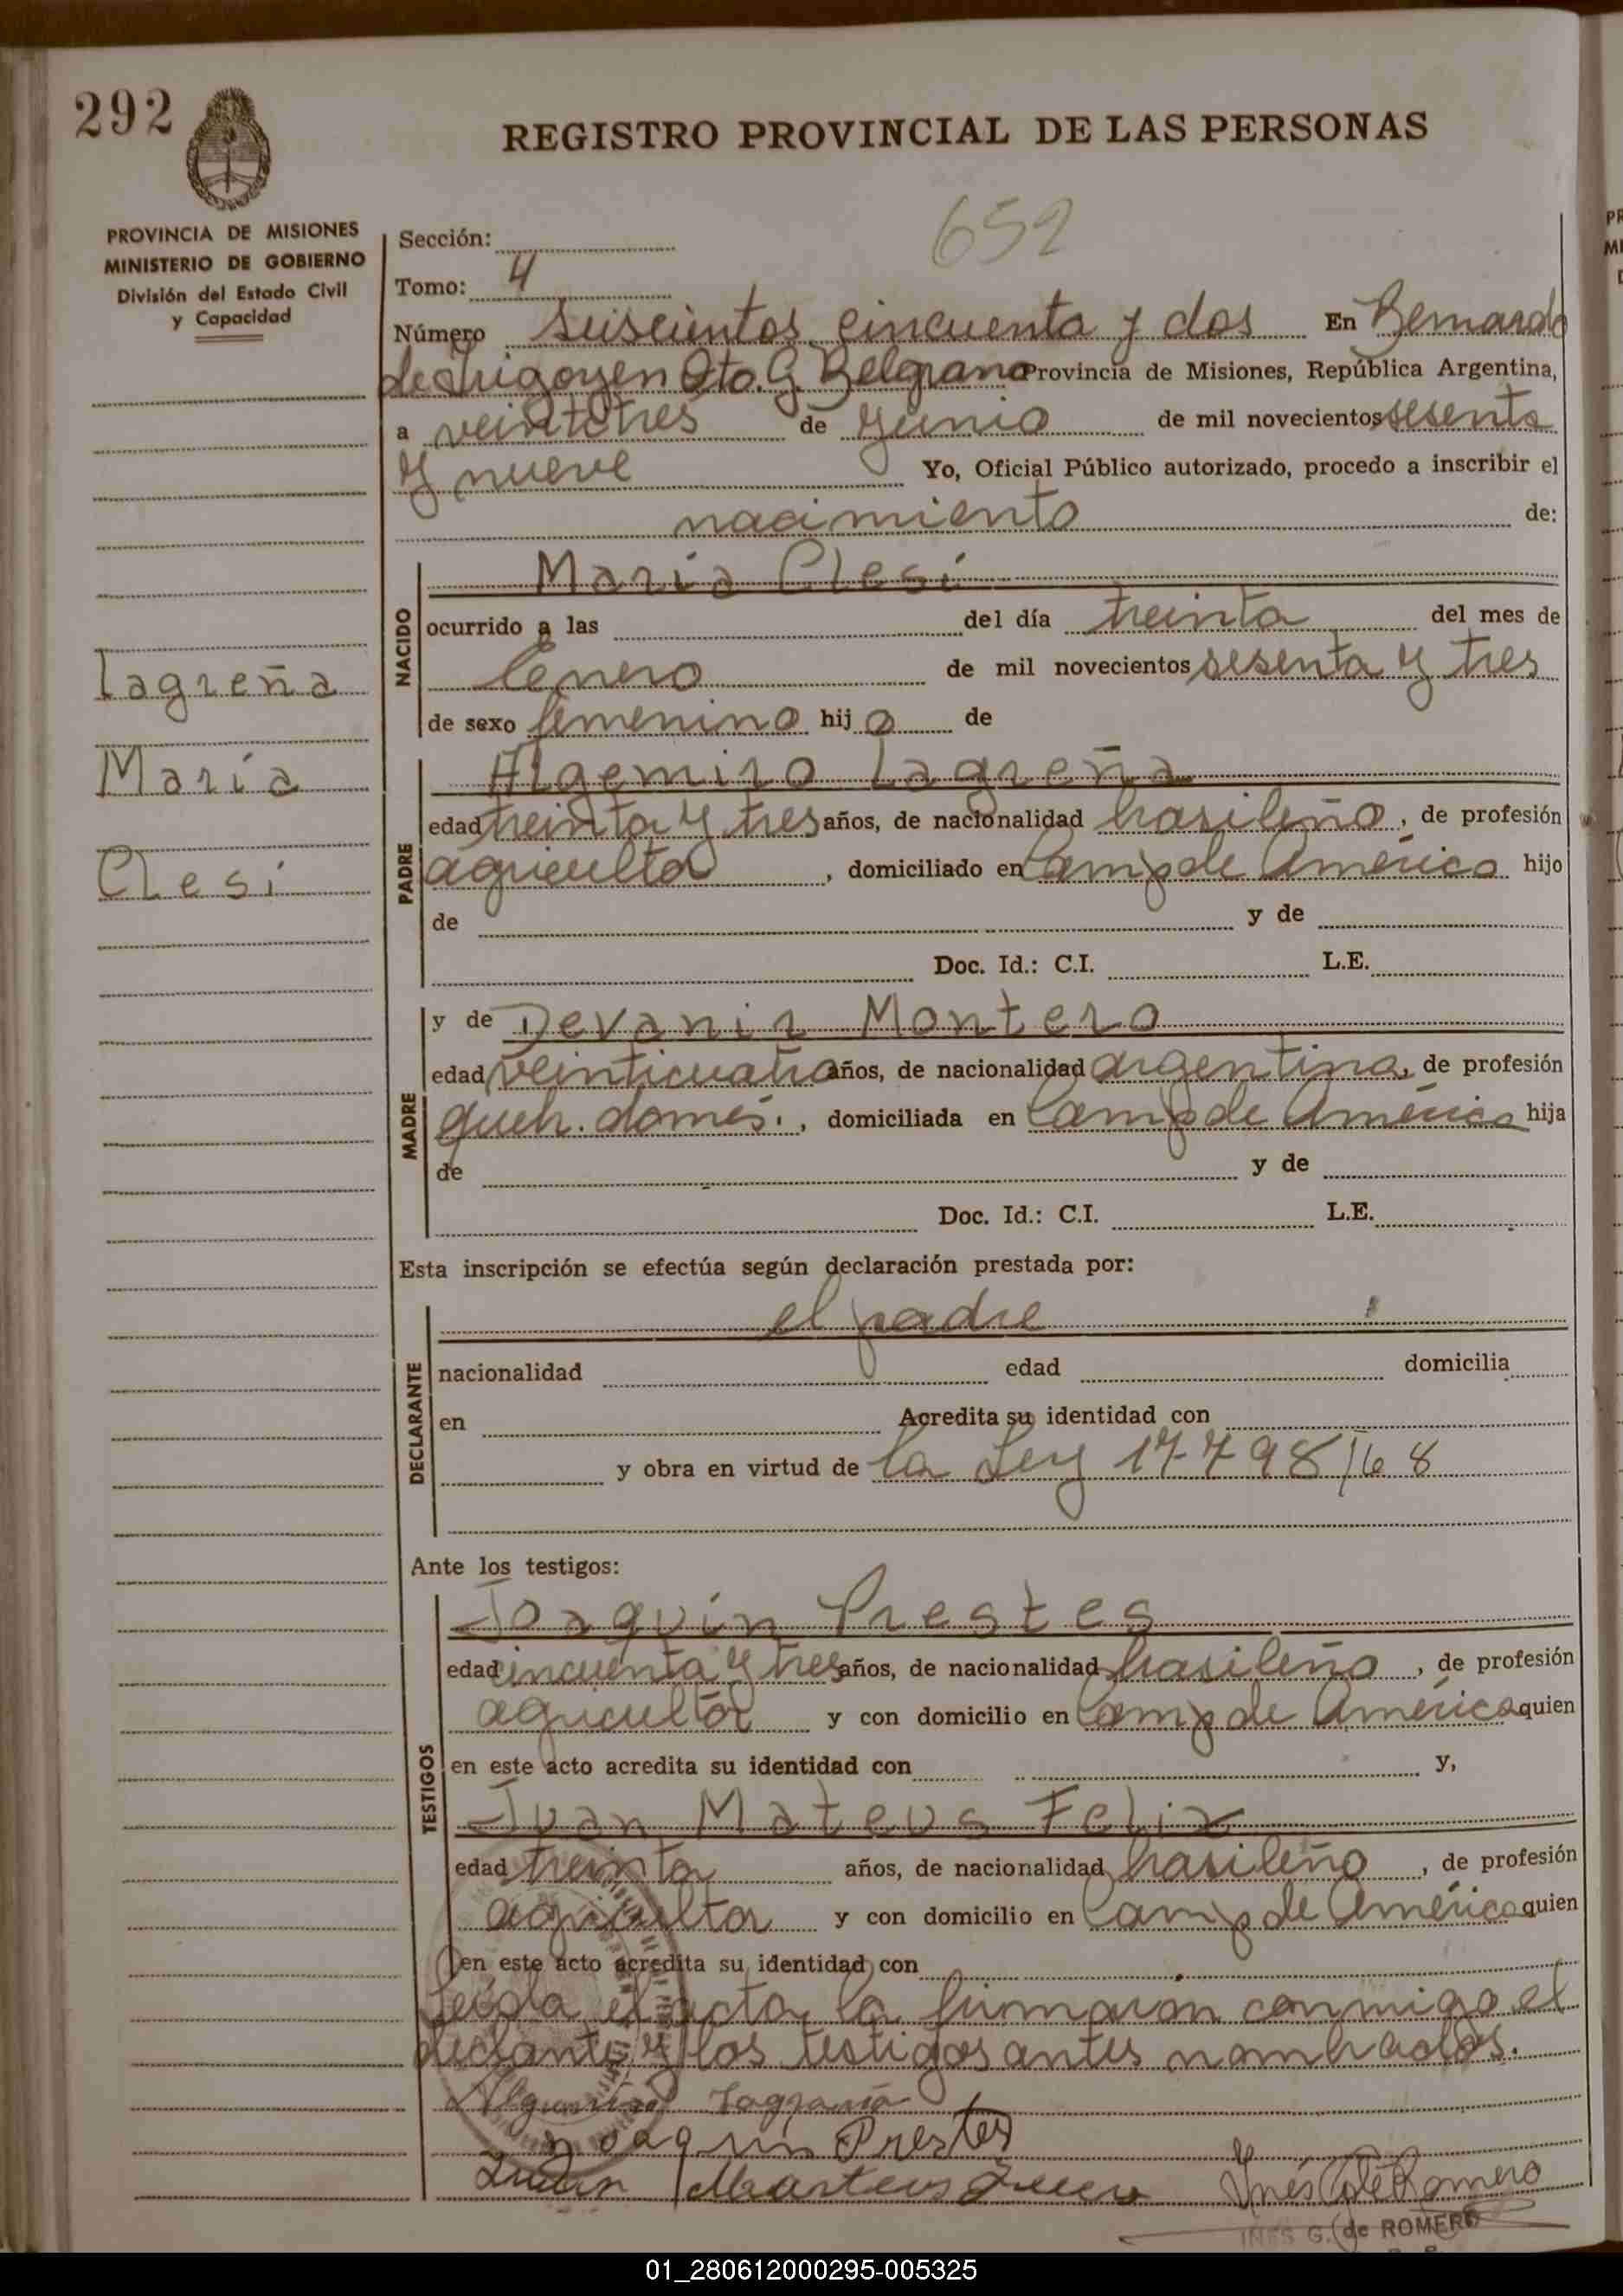 292
REGISTRO PROVINCIAL DE LAS PERSONAS
PROVINCIA DE MISIONES
MINISTERIO DE GOBIERNO
División del Estado Civil
y Capacidad
652
Sección:
Tomo: 4
Número seiscientos cincuenta y dos En Bernardo
de Irigoyen Dto. G. Belgrano Provincia de Misiones, República Argentina,
a veintitres de Junio de mil novecientos sesenta
y nueve Yo, Oficial Público autorizado, procedo a inscribir el
nacimiento de:
NACIDO
María Clesi
ocurrido a las del día treinta del mes de
Enero de mil novecientos sesenta y tres
de sexo femenino hij a de
Lagreña
María
Clesi
PADRE
Algemiro Lagreña
edad treinta y tres años, de nacionalidad brasileño, de profesión
agricultor, domiciliado en Camp de América hijo
de y de
Doc. Id.: C.I. L.E.
MADRE
y de Devanir Montero
edad veinticuatro años, de nacionalidad argentina, de profesión
queh. domés., domiciliada en Camp de América hija
de y de
Doc. Id.: C.I. L.E.
Esta inscripción se efectúa según declaración prestada por:
DECLARANTE
el padre
nacionalidad edad domicilia
en Acredita su identidad con
y obra en virtud de la Ley 17798/68
Ante los testigos:
TESTIGOS
Joaquin Prestes
edad cincuenta y tres años, de nacionalidad brasileño, de profesión
agricultor y con domicilio en Camp de América quien
en este acto acredita su identidad con y,
Juan Mateus Felix
edad treinta años, de nacionalidad brasileño, de profesión
agricultor y con domicilio en Camp de América quien
en este acto acredita su identidad con
Leida el acta la firmaron conmigo el
declante y los testigos antes nombrados.
Joaquin Prestes
Inés G. de Romero
INES G. de ROMERO
01_280612000295-005325